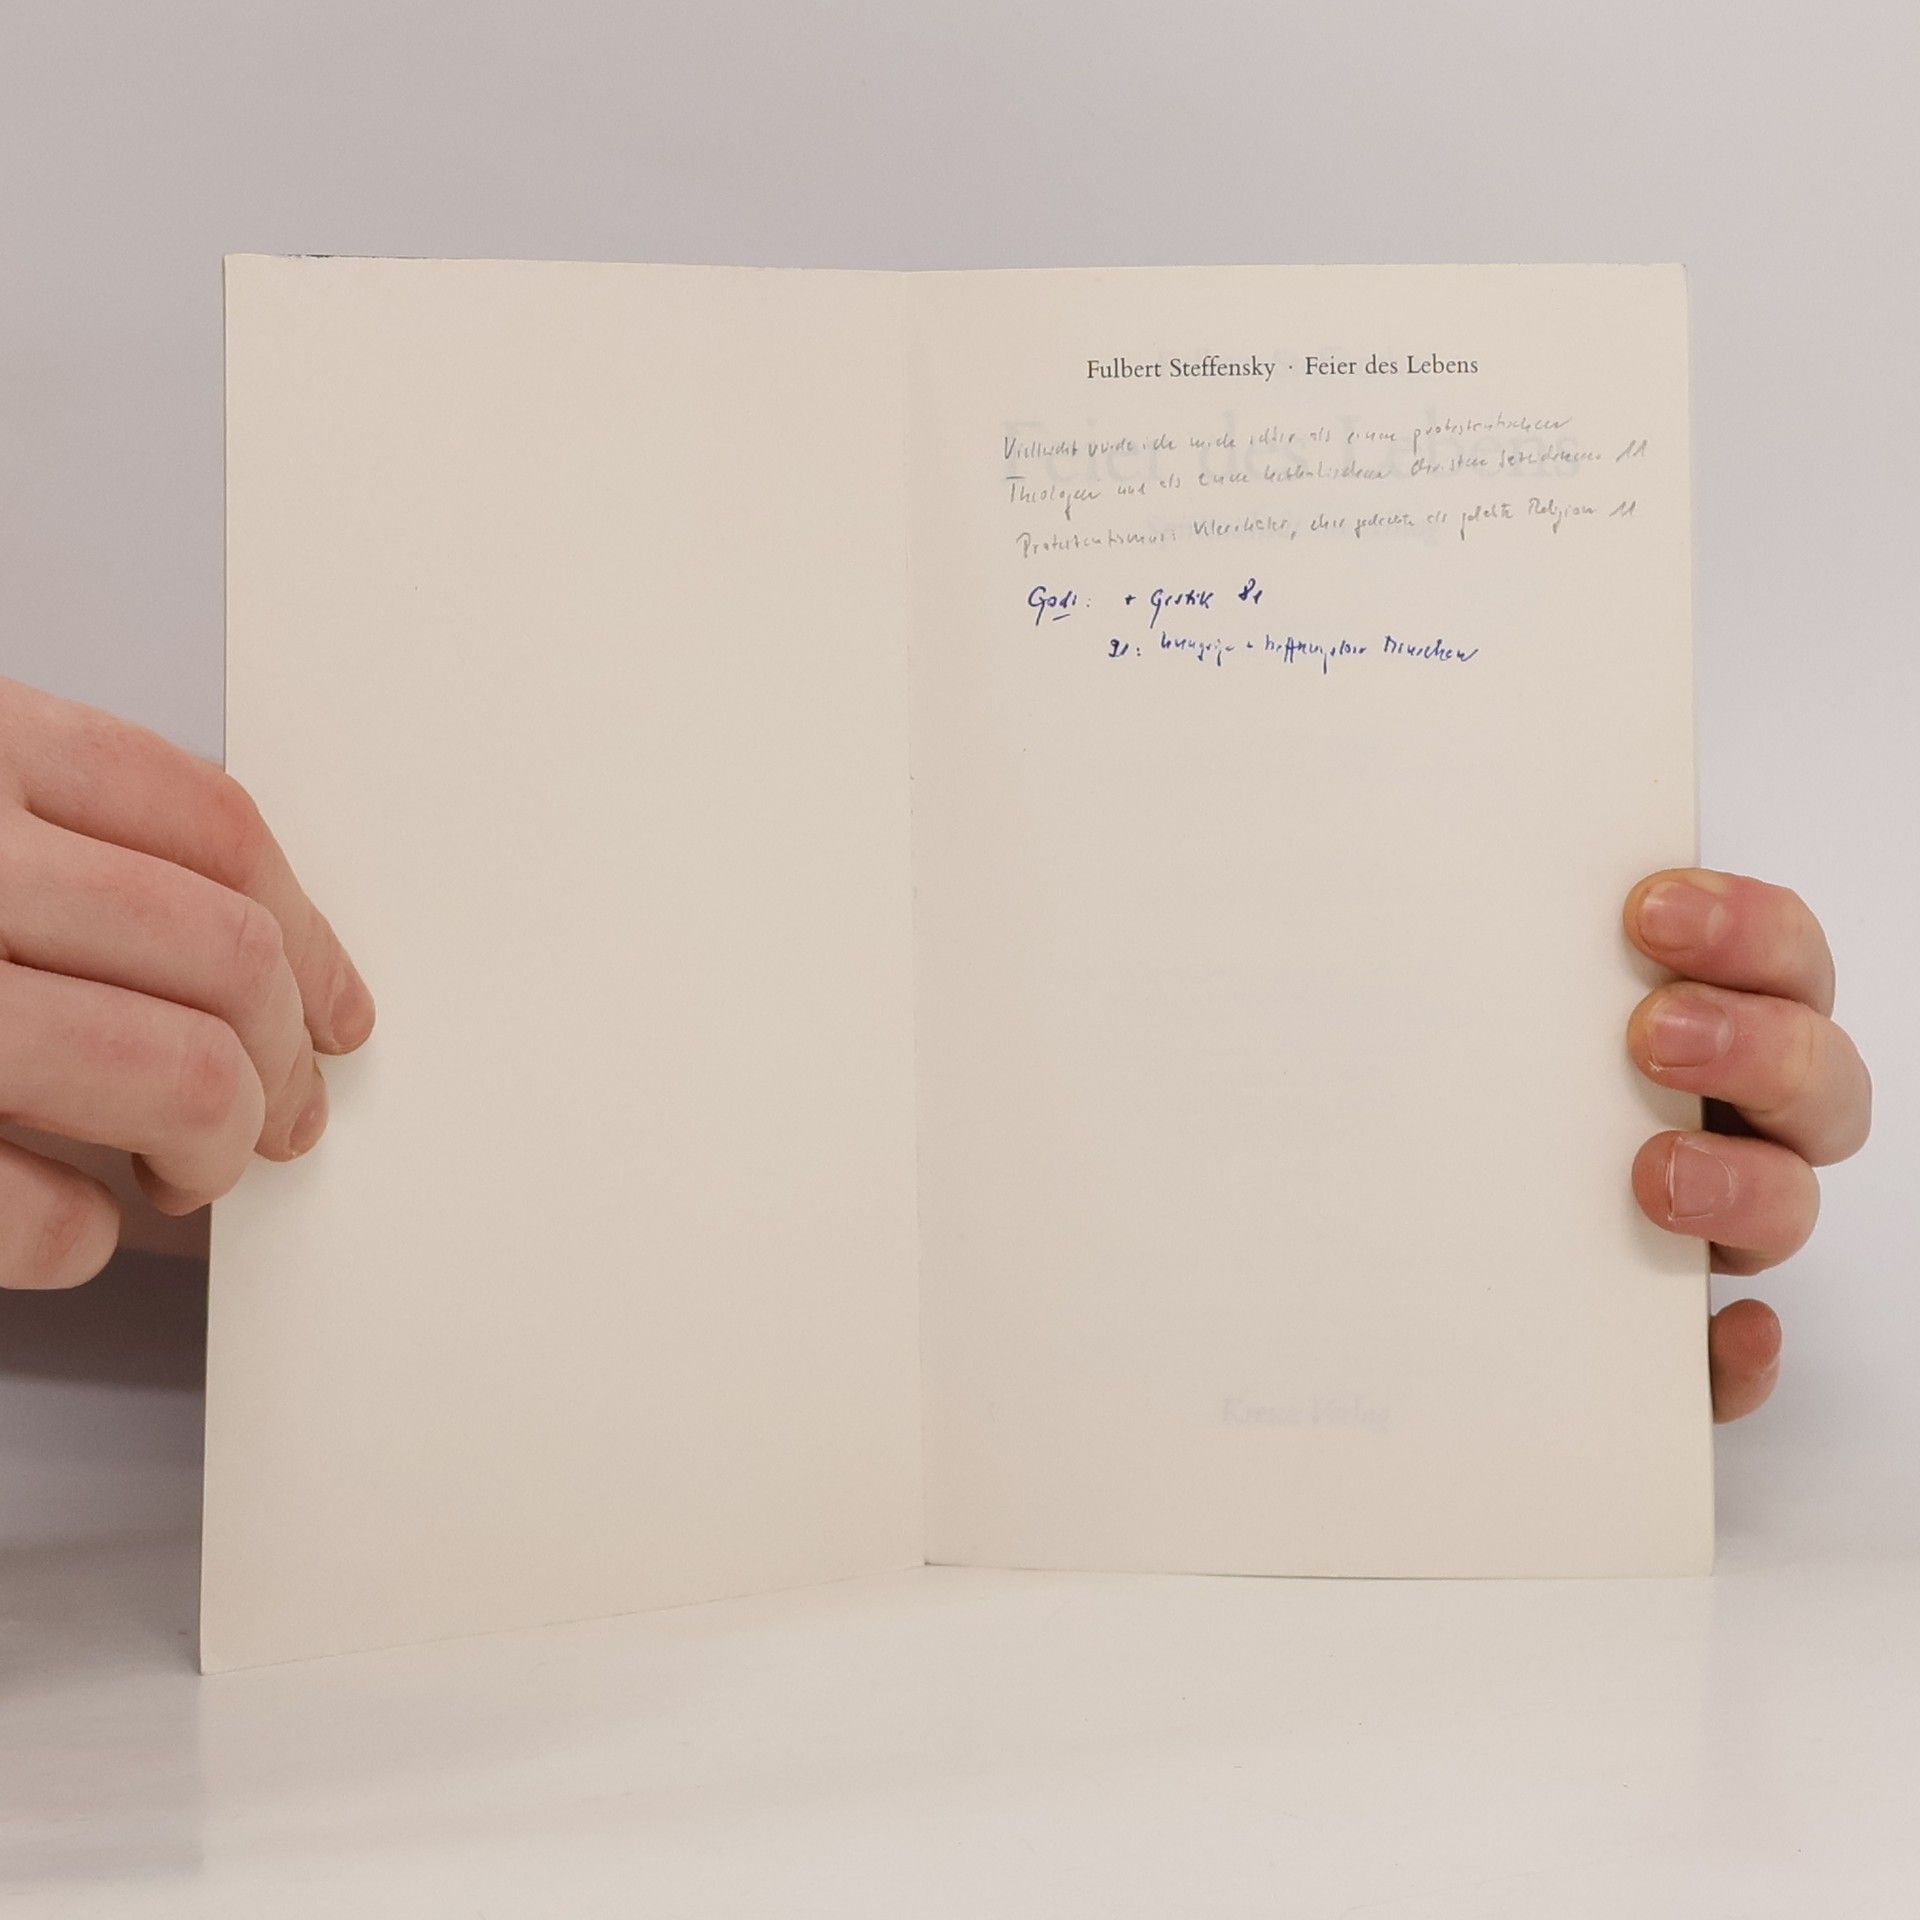 Fulbert Steffensky · Feier des Lebens
Vielleicht würde ich mich eher als einen protestantischen
Theologen und als einen katholischen Christen bezeichnen 11
Protestantismus: eher gedachte als gelebte Religion 11
Godi: + Gestik 81
91: + hoffnungslose Menschen
Feier des Lebens
Kreuz Verlag